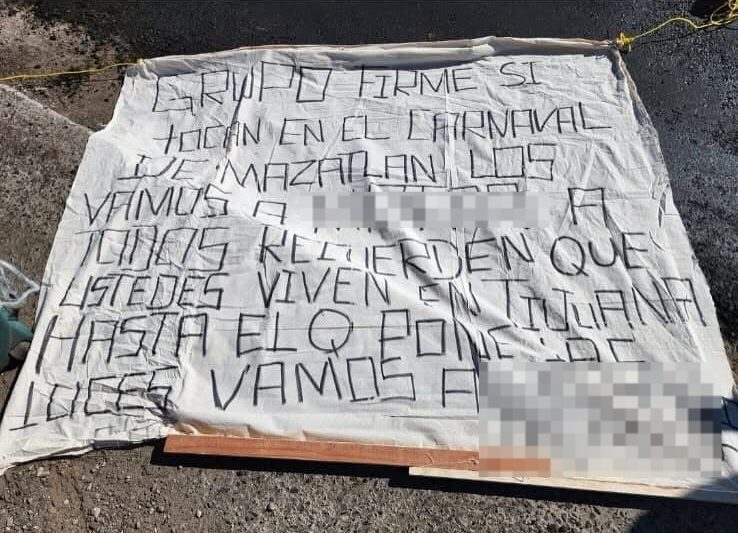 GRUPO FIRME SI
TOCAN EN EL CARNAVAL
DE MAZATLAN LOS
VAMOS A A
TODOS RECUERDEN QUE
USTEDES VIVEN EN TIJUANA
HASTA EL Q PONE LAS
LUCES VAMOS A